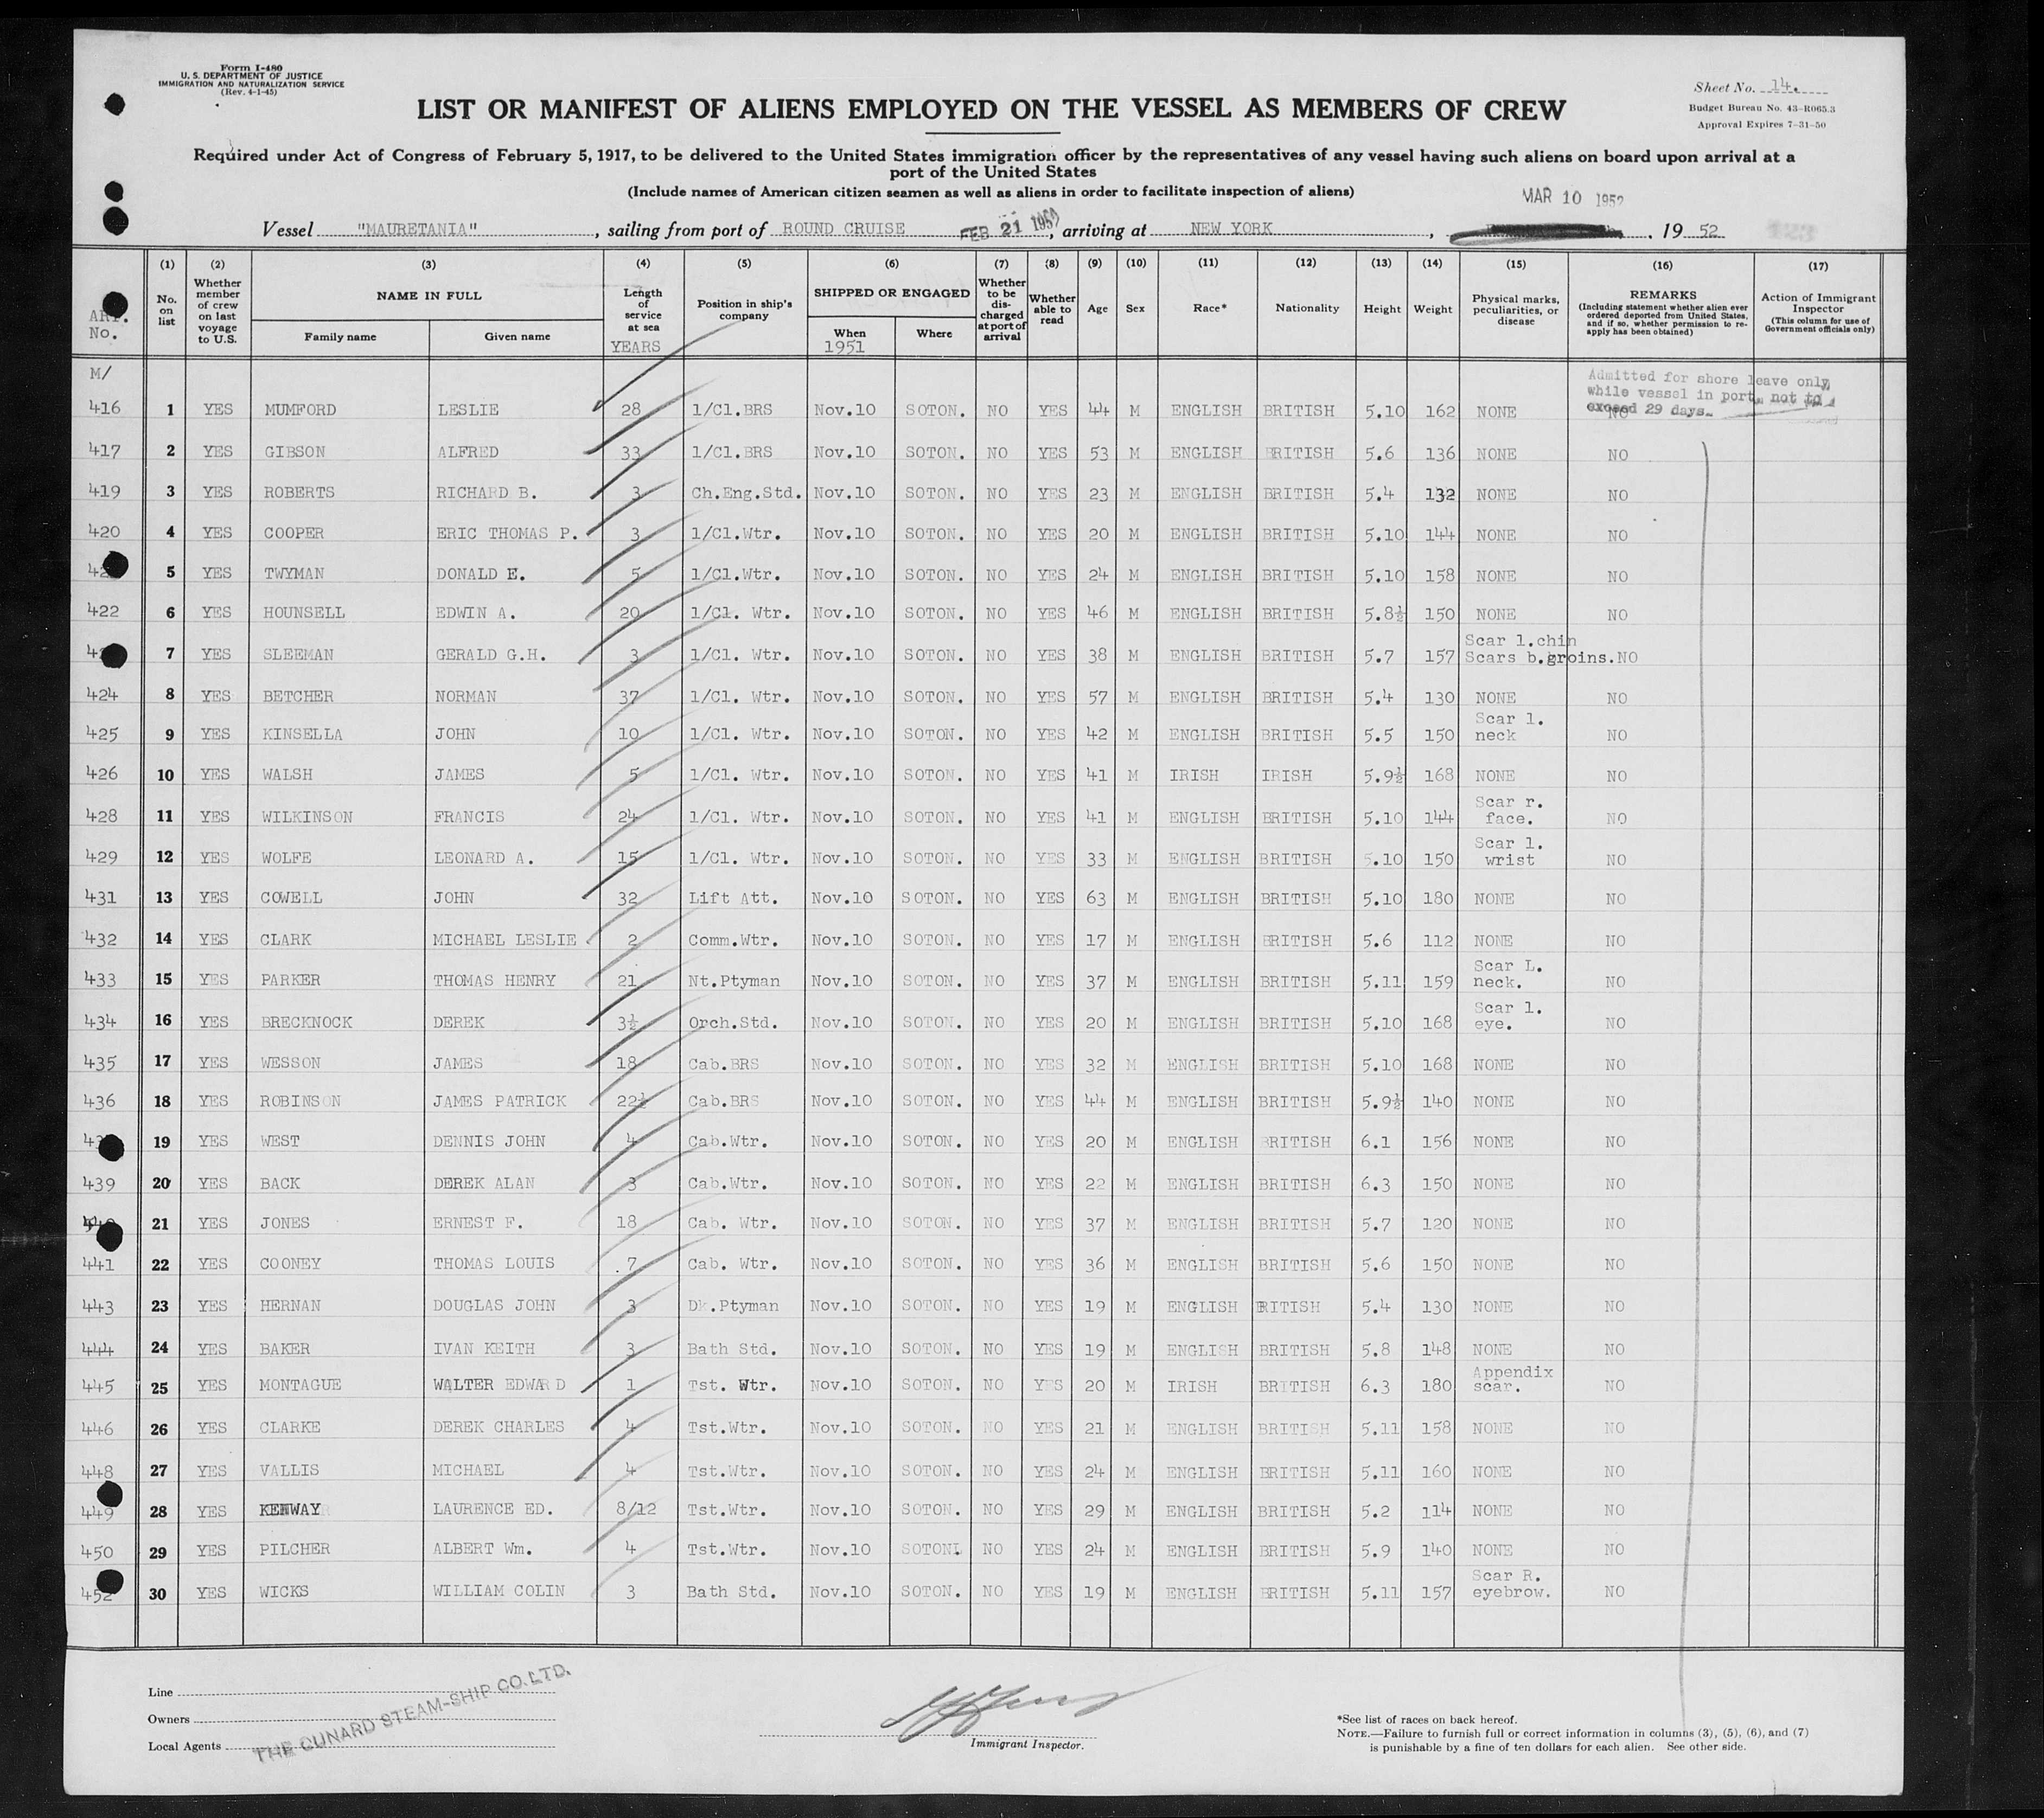 Form I-480
U. S. DEPARTMENT OF JUSTICE
IMMIGRATION AND NATURALIZATION SERVICE
(Rev. 4-1-45)
Sheet No. 14.
Budget Bureau No. 43-R065.3
Approval Expires 7-31-50
LIST OR MANIFEST OF ALIENS EMPLOYED ON THE VESSEL AS MEMBERS OF CREW
Required under Act of Congress of February 5, 1917, to be delivered to the United States immigration officer by the representatives of any vessel having such aliens on board upon arrival at a
port of the United States
(Include names of American citizen seamen as well as aliens in order to facilitate inspection of aliens)
MAR 10 1952
Vessel "MAURETANIA", sailing from port of ROUND CRUISE FEB 21 1952, arriving at NEW YORK, 19 52
ART. No.
(1) No. on list
(2) Whether member of crew on last voyage to U.S.
(3) NAME IN FULL Family name Given name
(4) Length of service at sea YEARS
(5) Position in ship's company
(6) SHIPPED OR ENGAGED When 1951 Where
(7) Whether to be discharged at port of arrival
(8) Whether able to read
(9) Age
(10) Sex
(11) Race*
(12) Nationality
(13) Height
(14) Weight
(15) Physical marks, peculiarities, or disease
(16) REMARKS (Including statement whether alien ever ordered deported from United States, and if so, whether permission to reapply has been obtained)
(17) Action of Immigrant Inspector (This column for use of Government officials only)
M/
Admitted for shore leave only,
while vessel in port, not to
exceed 29 days.
416 1 YES MUMFORD LESLIE 28 1/Cl.BRS Nov.10 SOTON. NO YES 44 M ENGLISH BRITISH 5.10 162 NONE NO
417 2 YES GIBSON ALFRED 33 1/Cl.BRS Nov.10 SOTON. NO YES 53 M ENGLISH BRITISH 5.6 136 NONE NO
419 3 YES ROBERTS RICHARD B. 3 Ch.Eng.Std. Nov.10 SOTON. NO YES 23 M ENGLISH BRITISH 5.4 132 NONE NO
420 4 YES COOPER ERIC THOMAS P. 3 1/Cl.Wtr. Nov.10 SOTON. NO YES 20 M ENGLISH BRITISH 5.10 144 NONE NO
5 YES TWYMAN DONALD E. 5 1/Cl.Wtr. Nov.10 SOTON. NO YES 24 M ENGLISH BRITISH 5.10 158 NONE NO
422 6 YES HOUNSELL EDWIN A. 20 1/Cl. Wtr. Nov.10 SOTON. NO YES 46 M ENGLISH BRITISH 5.8½ 150 NONE NO
7 YES SLEEMAN GERALD G.H. 3 1/Cl. Wtr. Nov.10 SOTON. NO YES 38 M ENGLISH BRITISH 5.7 157 Scar l.chin Scars b.groins. NO
424 8 YES BETCHER NORMAN 37 1/Cl. Wtr. Nov.10 SOTON. NO YES 57 M ENGLISH BRITISH 5.4 130 NONE NO
425 9 YES KINSELLA JOHN 10 1/Cl. Wtr. Nov.10 SOTON. NO YES 42 M ENGLISH BRITISH 5.5 150 Scar l. neck NO
426 10 YES WALSH JAMES 5 1/Cl. Wtr. Nov.10 SOTON. NO YES 41 M IRISH IRISH 5.9½ 168 NONE NO
428 11 YES WILKINSON FRANCIS 24 1/Cl. Wtr. Nov.10 SOTON. NO YES 41 M ENGLISH BRITISH 5.10 144 Scar r. face. NO
429 12 YES WOLFE LEONARD A. 15 1/Cl. Wtr. Nov.10 SOTON. NO YES 33 M ENGLISH BRITISH 5.10 150 Scar l. wrist NO
431 13 YES COWELL JOHN 32 Lift Att. Nov.10 SOTON. NO YES 63 M ENGLISH BRITISH 5.10 180 NONE NO
432 14 YES CLARK MICHAEL LESLIE 2 Comm.Wtr. Nov.10 SOTON. NO YES 17 M ENGLISH BRITISH 5.6 112 NONE NO
433 15 YES PARKER THOMAS HENRY 21 Nt.Ptyman Nov.10 SOTON. NO YES 37 M ENGLISH BRITISH 5.11 159 Scar L. neck. NO
434 16 YES BRECKNOCK DEREK 3½ Orch.Std. Nov.10 SOTON. NO YES 20 M ENGLISH BRITISH 5.10 168 Scar l. eye. NO
435 17 YES WESSON JAMES 18 Cab.BRS Nov.10 SOTON. NO YES 32 M ENGLISH BRITISH 5.10 168 NONE NO
436 18 YES ROBINSON JAMES PATRICK 22½ Cab.BRS Nov.10 SOTON. NO YES 44 M ENGLISH BRITISH 5.9½ 140 NONE NO
19 YES WEST DENNIS JOHN 4 Cab.Wtr. Nov.10 SOTON. NO YES 20 M ENGLISH BRITISH 6.1 156 NONE NO
439 20 YES BACK DEREK ALAN 3 Cab.Wtr. Nov.10 SOTON. NO YES 22 M ENGLISH BRITISH 6.3 150 NONE NO
440 21 YES JONES ERNEST F. 18 Cab. Wtr. Nov.10 SOTON. NO YES 37 M ENGLISH BRITISH 5.7 120 NONE NO
441 22 YES COONEY THOMAS LOUIS 7 Cab. Wtr. Nov.10 SOTON. NO YES 36 M ENGLISH BRITISH 5.6 150 NONE NO
443 23 YES HERNAN DOUGLAS JOHN 3 Dk.Ptyman Nov.10 SOTON. NO YES 19 M ENGLISH BRITISH 5.4 130 NONE NO
444 24 YES BAKER IVAN KEITH 3 Bath Std. Nov.10 SOTON. NO YES 19 M ENGLISH BRITISH 5.8 148 NONE NO
445 25 YES MONTAGUE WALTER EDWARD 1 Tst. Wtr. Nov.10 SOTON. NO YES 20 M IRISH BRITISH 6.3 180 Appendix scar. NO
446 26 YES CLARKE DEREK CHARLES 4 Tst.Wtr. Nov.10 SOTON. NO YES 21 M ENGLISH BRITISH 5.11 158 NONE NO
448 27 YES VALLIS MICHAEL 4 Tst.Wtr. Nov.10 SOTON. NO YES 24 M ENGLISH BRITISH 5.11 160 NONE NO
449 28 YES KENWAY LAURENCE ED. 8/12 Tst.Wtr. Nov.10 SOTON. NO YES 29 M ENGLISH BRITISH 5.2 114 NONE NO
450 29 YES PILCHER ALBERT Wm. 4 Tst.Wtr. Nov.10 SOTON. NO YES 24 M ENGLISH BRITISH 5.9 140 NONE NO
452 30 YES WICKS WILLIAM COLIN 3 Bath Std. Nov.10 SOTON. NO YES 19 M ENGLISH BRITISH 5.11 157 Scar R. eyebrow. NO
Line
Owners
Local Agents
THE CUNARD STEAM-SHIP CO. LTD.
Immigrant Inspector.
*See list of races on back hereof.
NOTE.—Failure to furnish full or correct information in columns (3), (5), (6), and (7)
is punishable by a fine of ten dollars for each alien. See other side.